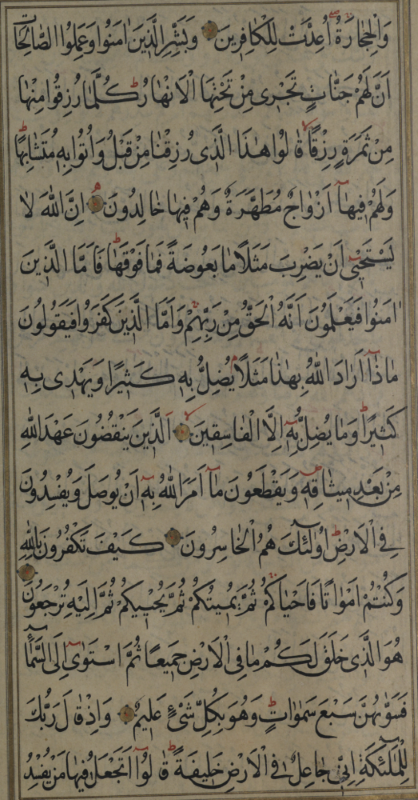 وَالْحِجَارَةُ اُعِدَّتْ لِلْكَافِرينَ وَبَشِّرِ الَّذينَ اٰمَنُوا وَعَمِلُوا الصَّالِحَاتِ
اَنَّ لَهُمْ جَنَّاتٍ تَجْرى مِنْ تَحْتِهَا الْاَنْهَارُ كُلَّمَا رُزِقُوا مِنْهَا
مِنْ ثَمَرَةٍ رِزْقًا قَالُوا هٰذَا الَّذى رُزِقْنَا مِنْ قَبْلُ وَاُتُوا بِه مُتَشَابِهًا
وَلَهُمْ فيهَا اَزْوَاجٌ مُطَهَّرَةٌ وَهُمْ فيهَا خَالِدُونَ اِنَّ اللّٰهَ لَا
يَسْتَحْيى اَنْ يَضْرِبَ مَثَلًا مَا بَعُوضَةً فَمَا فَوْقَهَا فَاَمَّا الَّذينَ
اٰمَنُوا فَيَعْلَمُونَ اَنَّهُ الْحَقُّ مِنْ رَبِّهِمْ وَاَمَّا الَّذينَ كَفَرُوا فَيَقُولُونَ
مَاذَا اَرَادَ اللّٰهُ بِهٰذَا مَثَلًا يُضِلُّ بِه كَثيرًا وَيَهْدى بِه
كَثيرًا وَمَا يُضِلُّ بِه اِلَّا الْفَاسِقينَ اَلَّذينَ يَنْقُضُونَ عَهْدَ اللّٰهِ
مِنْ بَعْدِ ميثَاقِه وَيَقْطَعُونَ مَا اَمَرَ اللّٰهُ بِه اَنْ يُوصَلَ وَيُفْسِدُونَ
فِى الْاَرْضِ اُولٰئِكَ هُمُ الْخَاسِرُونَ كَيْفَ تَكْفُرُونَ بِاللّٰهِ
وَكُنْتُمْ اَمْوَاتًا فَاَحْيَاكُمْ ثُمَّ يُميتُكُمْ ثُمَّ يُحْييكُمْ ثُمَّ اِلَيْهِ تُرْجَعُونَ
هُوَ الَّذى خَلَقَ لَكُمْ مَا فِى الْاَرْضِ جَميعًا ثُمَّ اسْتَوٰى اِلَى السَّمَاءِ
فَسَوّٰيهُنَّ سَبْعَ سَمٰوَاتٍ وَهُوَ بِكُلِّ شَىْءٍ عَليمٌ وَاِذْ قَالَ رَبُّكَ
لِلْمَلٰئِكَةِ اِنّى جَاعِلٌ فِى الْاَرْضِ خَليفَةً قَالُوا اَتَجْعَلُ فيهَا مَنْ يُفْسِدُ